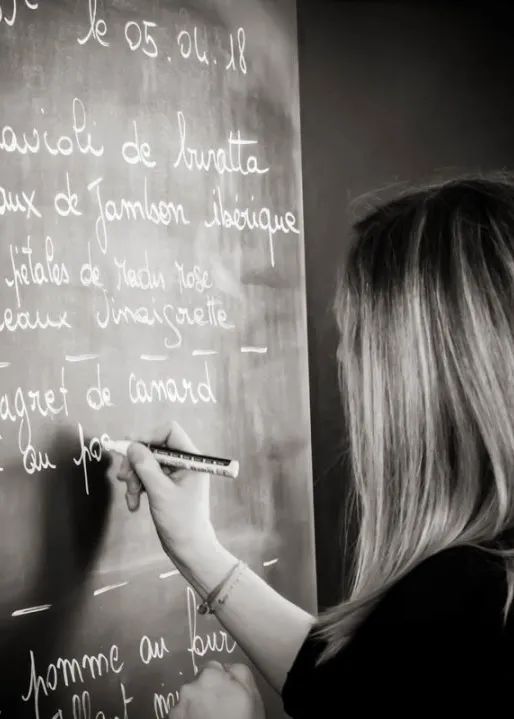 le 05.04.18
avioli de buratta
aux de Jambon ibérique
pétales de Radis rose
eaux Vinaigrette
agret de canard
au po
pomme au four